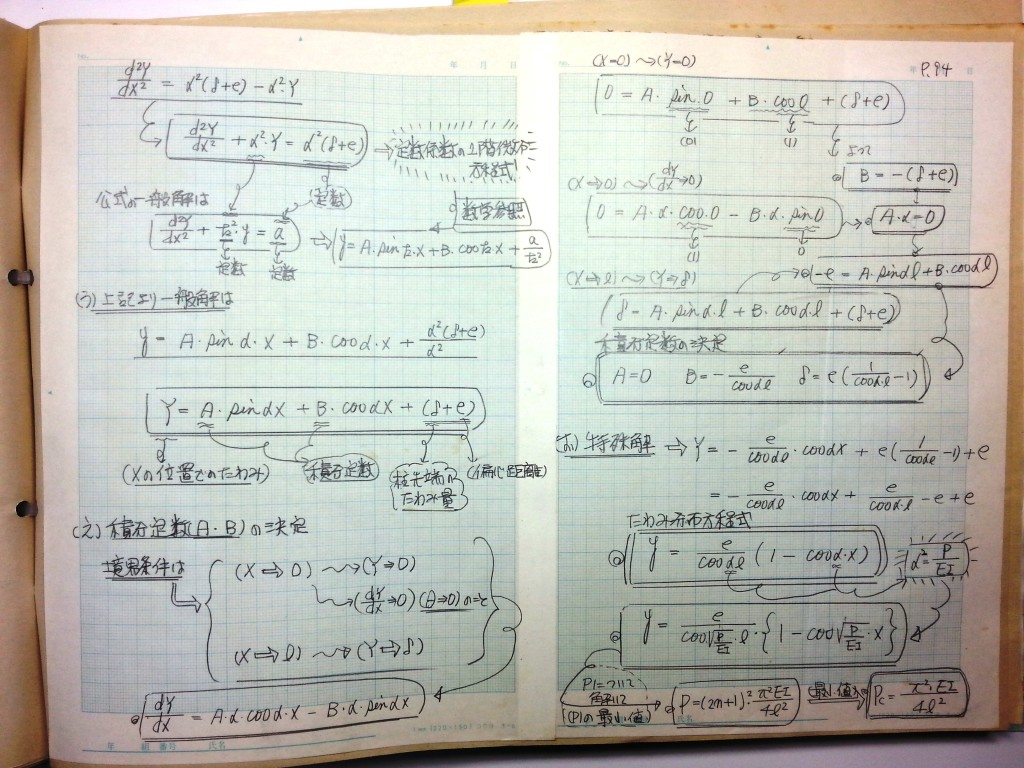 d²Y/dx² = α²(δ+e) - α²·Y
d²Y/dx² + α²·Y = α²(δ+e)
→ 定数係数の2階微分方程式
公式の一般解は
定数
数学参照
d²y/dx² + k²·y = a
定数 定数
⇒ y = A·sin k·x + B·cos k·x + a/k²
(う) 上記より一般解は
y = A·sin α·x + B·cos α·x + α²(δ+e)/α²
Y = A·sin αx + B·cos αx + (δ+e)
(Xの位置でのたわみ)
積分定数
柱先端のたわみ量
(偏心距離)
(え) 積分定数(A·B)の決定
境界条件は
(X⇒0) 〜→ (Y⇒0)
〜→ (dy/dx⇒0) (θ⇒0)のこと
(X⇒l) 〜→ (Y⇒δ)
dY/dx = A·α·cos α·x - B·α·sin αx
年 組 番号 氏名
年 月 日
(X=0) 〜→ (Y=0)
P.94
0 = A·sin.0 + B·cos 0 + (δ+e)
(0) (1)
よって
B = -(δ+e)
(X⇒0) 〜→ (dy/dx⇒0)
0 = A·α·cos.0 - B·α·sin 0
(1) 0
A·α=0
(X⇒l) 〜→ (Y⇒δ)
-e = A·sin αl + B·cos αl
δ = A·sin α·l + B·cos α·l + (δ+e)
積分定数の決定
A=0 B = - e/cos αl δ = e(1/cos α·l - 1)
(お) 特殊解 → Y = - e/cos αl · cos αx + e(1/cos αl - 1) + e
= - e/cos αl · cos αx + e/cos αl - e + e
たわみ分布方程式
y = e/cos αl (1 - cos α·x)
α² = P/EI
y = e/cos√(P/EI)·l · {1 - cos√(P/EI)·x}
Pについて
角解いて
(P)の最小値
P = (2n+1)²·π²EI/4l²
最小値
Pc = π²·EI/4l²
氏名